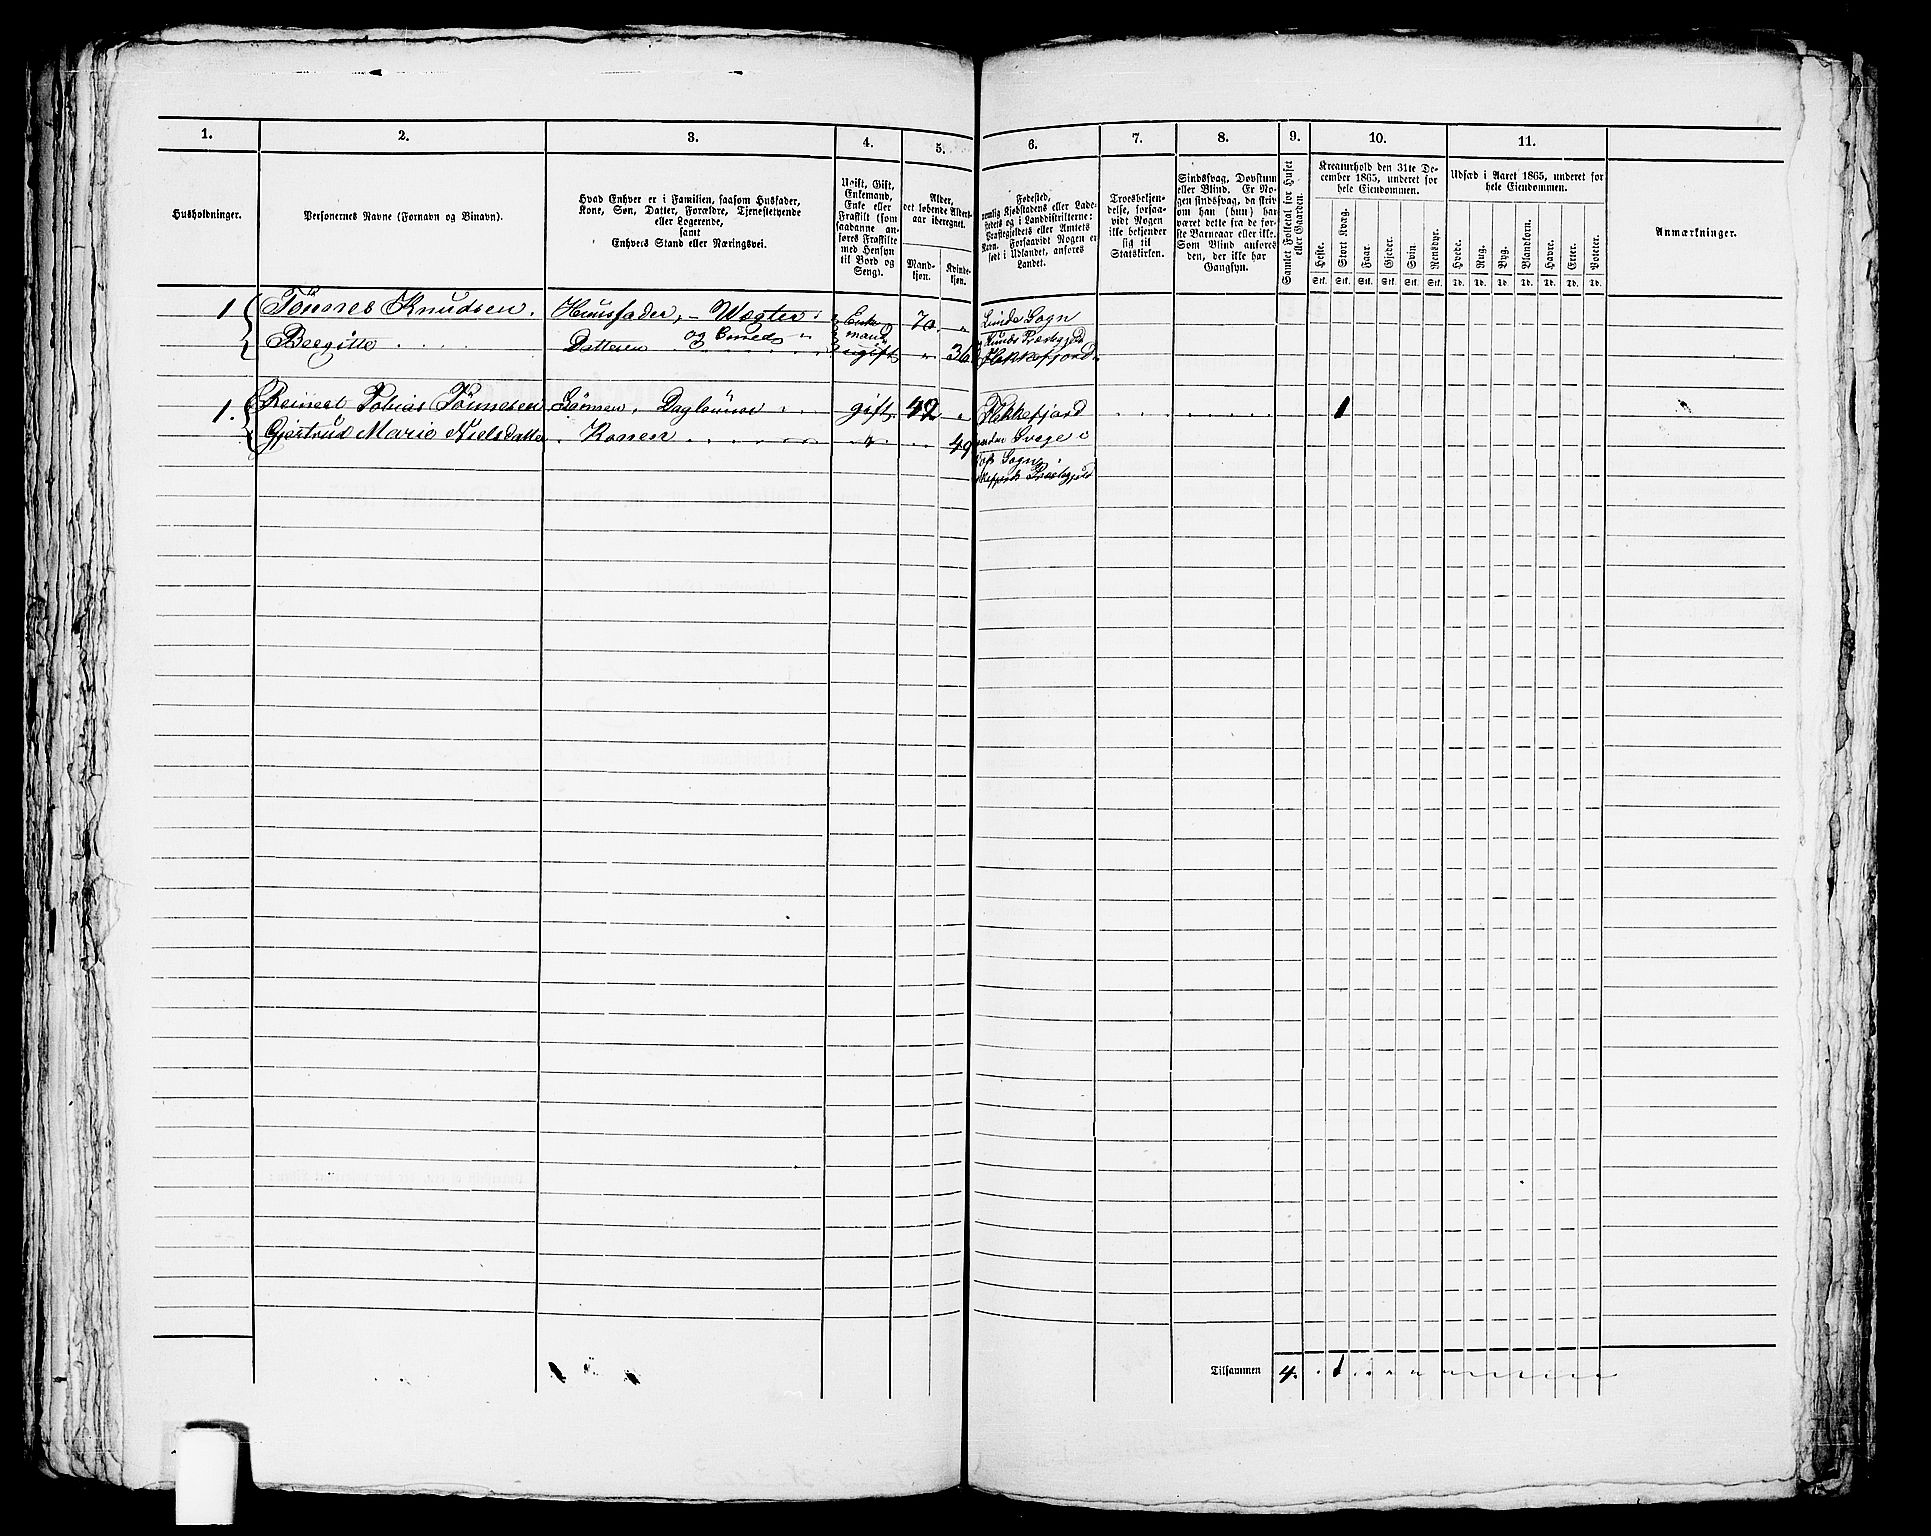 1. 2. 3. 4. 5. 6. 7. 8. 9. 10. 11.
Husholdninger.
Personernes Navne (Fornavn og Binavn).
Hvad Enhver er i Familien, saasom Husfader,
Kone, Søn, Datter, Forældre, Tjenestetyende
eller Logerende,
samt
Enhvers Stand eller Næringsvei.
Ugift, Gift,
Enkemand,
Enke eller
Fraskilt (som
saadanne an-
føres Fraskilte
med Hensyn
til Bord og
Seng).
Alder,
det løbende Alders-
aar iberegnet.
Mand-
kjøn.
Kvinde-
kjøn.
Fødested,
nemlig Kjøbstadens eller Lade-
stedets og i Landdistrikterne:
Præstegjeldets eller Amtets
Navn. Forsaavidt Nogen er
født i Udlandet, anføres
Landet.
Troesbekjen-
delse, forsaa-
vidt Nogen
ikke bekjender
sig til
Statskirken.
Sindssvag, Døvstum
eller Blind. Er No-
gen sindssvag, da skriv
om han (hun) har
været dette fra de før-
ste Barneaar eller ikke.
Som Blind anføres
den, der ikke har
Gangsyn.
Samlet Folketal for Huset
eller Gaarden.
Kreaturhold den 31te De-
cember 1865, underet for
hele Eiendommen.
Heste. Stort Kvæg. Faar. Gjeder. Svin Rensdyr.
Stk. Stk. Stk. Stk. Stk. Stk.
Udsæd i Aaret 1865, underet for
hele Eiendommen.
Hvede. Rug. Byg. Blandkorn. Havre. Erter. Poteter.
Td. Td. Td. Td. Td. Td. Td.
Anmærkninger.
1 Tönnes Knudsen. Huusfader, - Vægter og Enke mand 70. " Lunde Sogn
Lunds Præstegjeld
Beegitte Datteren ugift " 36 Flekkefjord
1. Reinert Tobias Tönnesen Sönnen, Daglönner gift 42 " Flekkefjord 1
Gjertrud Marie Nielsdatter Konen " 49
Sogn
Præstegjeld
Tilsammen 4. 1